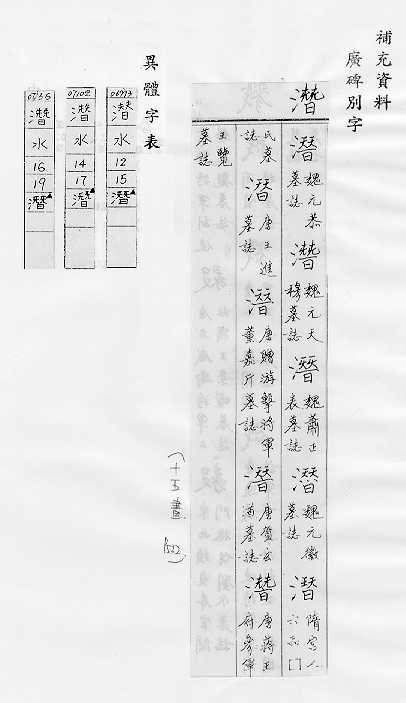 補充資料
廣碑別字
潛
潛 魏元恭墓誌 潛 魏元天穆墓誌 潛 魏蕭正表墓誌 潛 魏元徽墓誌 潛 隋宮人六品
氏墓誌 潛 唐王進墓誌 潛 唐贈游擊將軍董嘉斤墓誌 潛 唐賀玄道墓誌 潛 唐蔣王府參軍
王覽墓誌
(十五畫
異體字表
潛
水
12
15
潛
07102
潛
水
14
17
潛
潛
水
16
19
潛